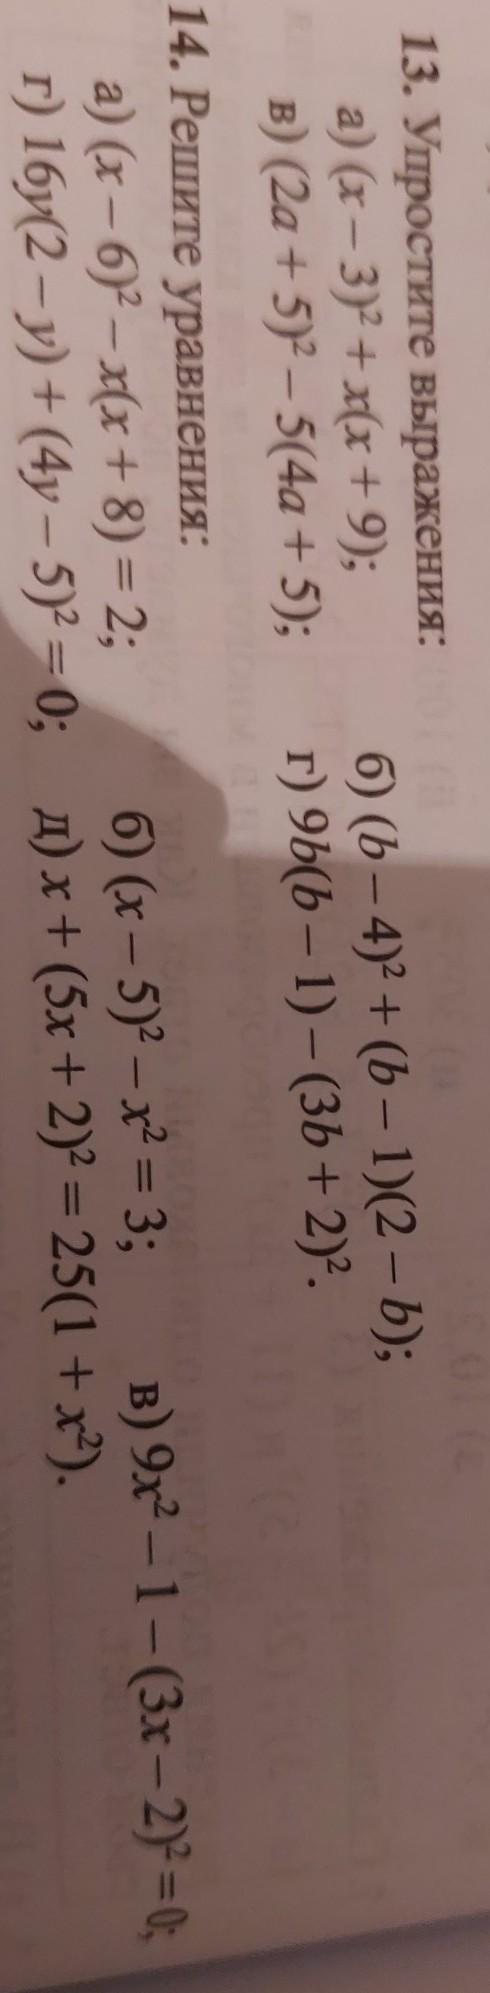 13. Упростите выражения:
а) (x – 3)² + x(x + 9); б) (b – 4)² + (b – 1)(2 – b);
в) (2a + 5)² – 5(4a + 5); г) 9b(b – 1) – (3b + 2)².
14. Решите уравнения:
а) (x – 6)² – x(x + 8) = 2; б) (x – 5)² – x² = 3; в) 9x² – 1 – (3x – 2)² = 0;
г) 16y(2 – y) + (4y – 5)² = 0; д) x + (5x + 2)² = 25(1 + x²).